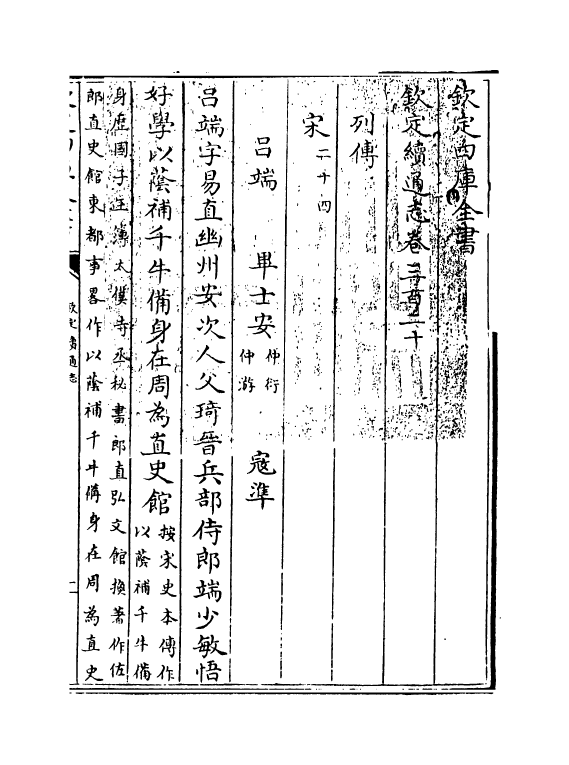 欽定四庫全書
欽定續通志卷三百二十
列傳
宋二十四
呂端　畢士安仲衍仲游　寇準
呂端字易直幽州安次人父琦晉兵部侍郎端少敏悟
好學以蔭補千牛備身在周為直史館按宋史本傳作以蔭補千牛備
身歷國子主簿太僕寺丞秘書郎直弘文館換著作佐
郎直史館東都事畧作以蔭補千牛備身在周為直史
欽定續通志